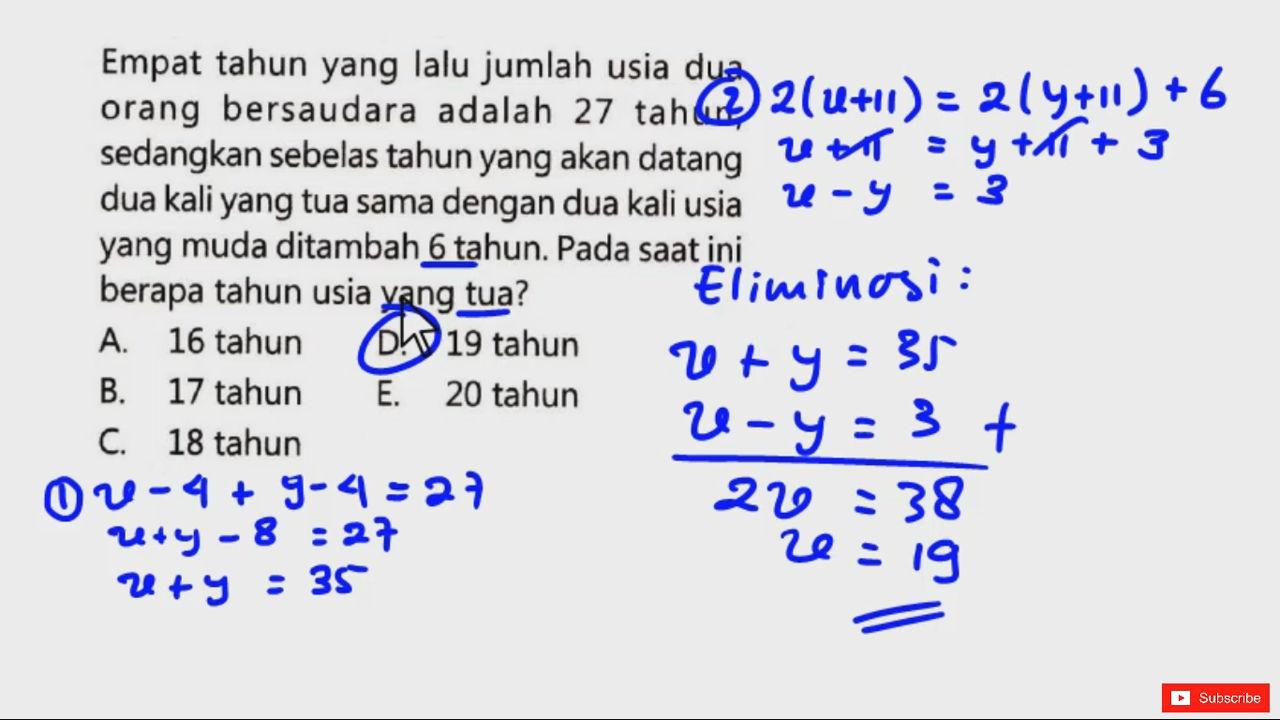 Empat tahun yang lalu jumlah usia dua
orang bersaudara adalah 27 tahun,
sedangkan sebelas tahun yang akan datang
dua kali yang tua sama dengan dua kali usia
yang muda ditambah 6 tahun. Pada saat ini
berapa tahun usia yang tua?
A. 16 tahun D. 19 tahun
B. 17 tahun E. 20 tahun
C. 18 tahun
① x - 4 + y - 4 = 27
x + y - 8 = 27
x + y = 35
② 2(x+11) = 2(y+11) + 6
x + 11 = y + 11 + 3
x - y = 3
Eliminasi :
x + y = 35
x - y = 3 +
2x = 38
x = 19
Subscribe